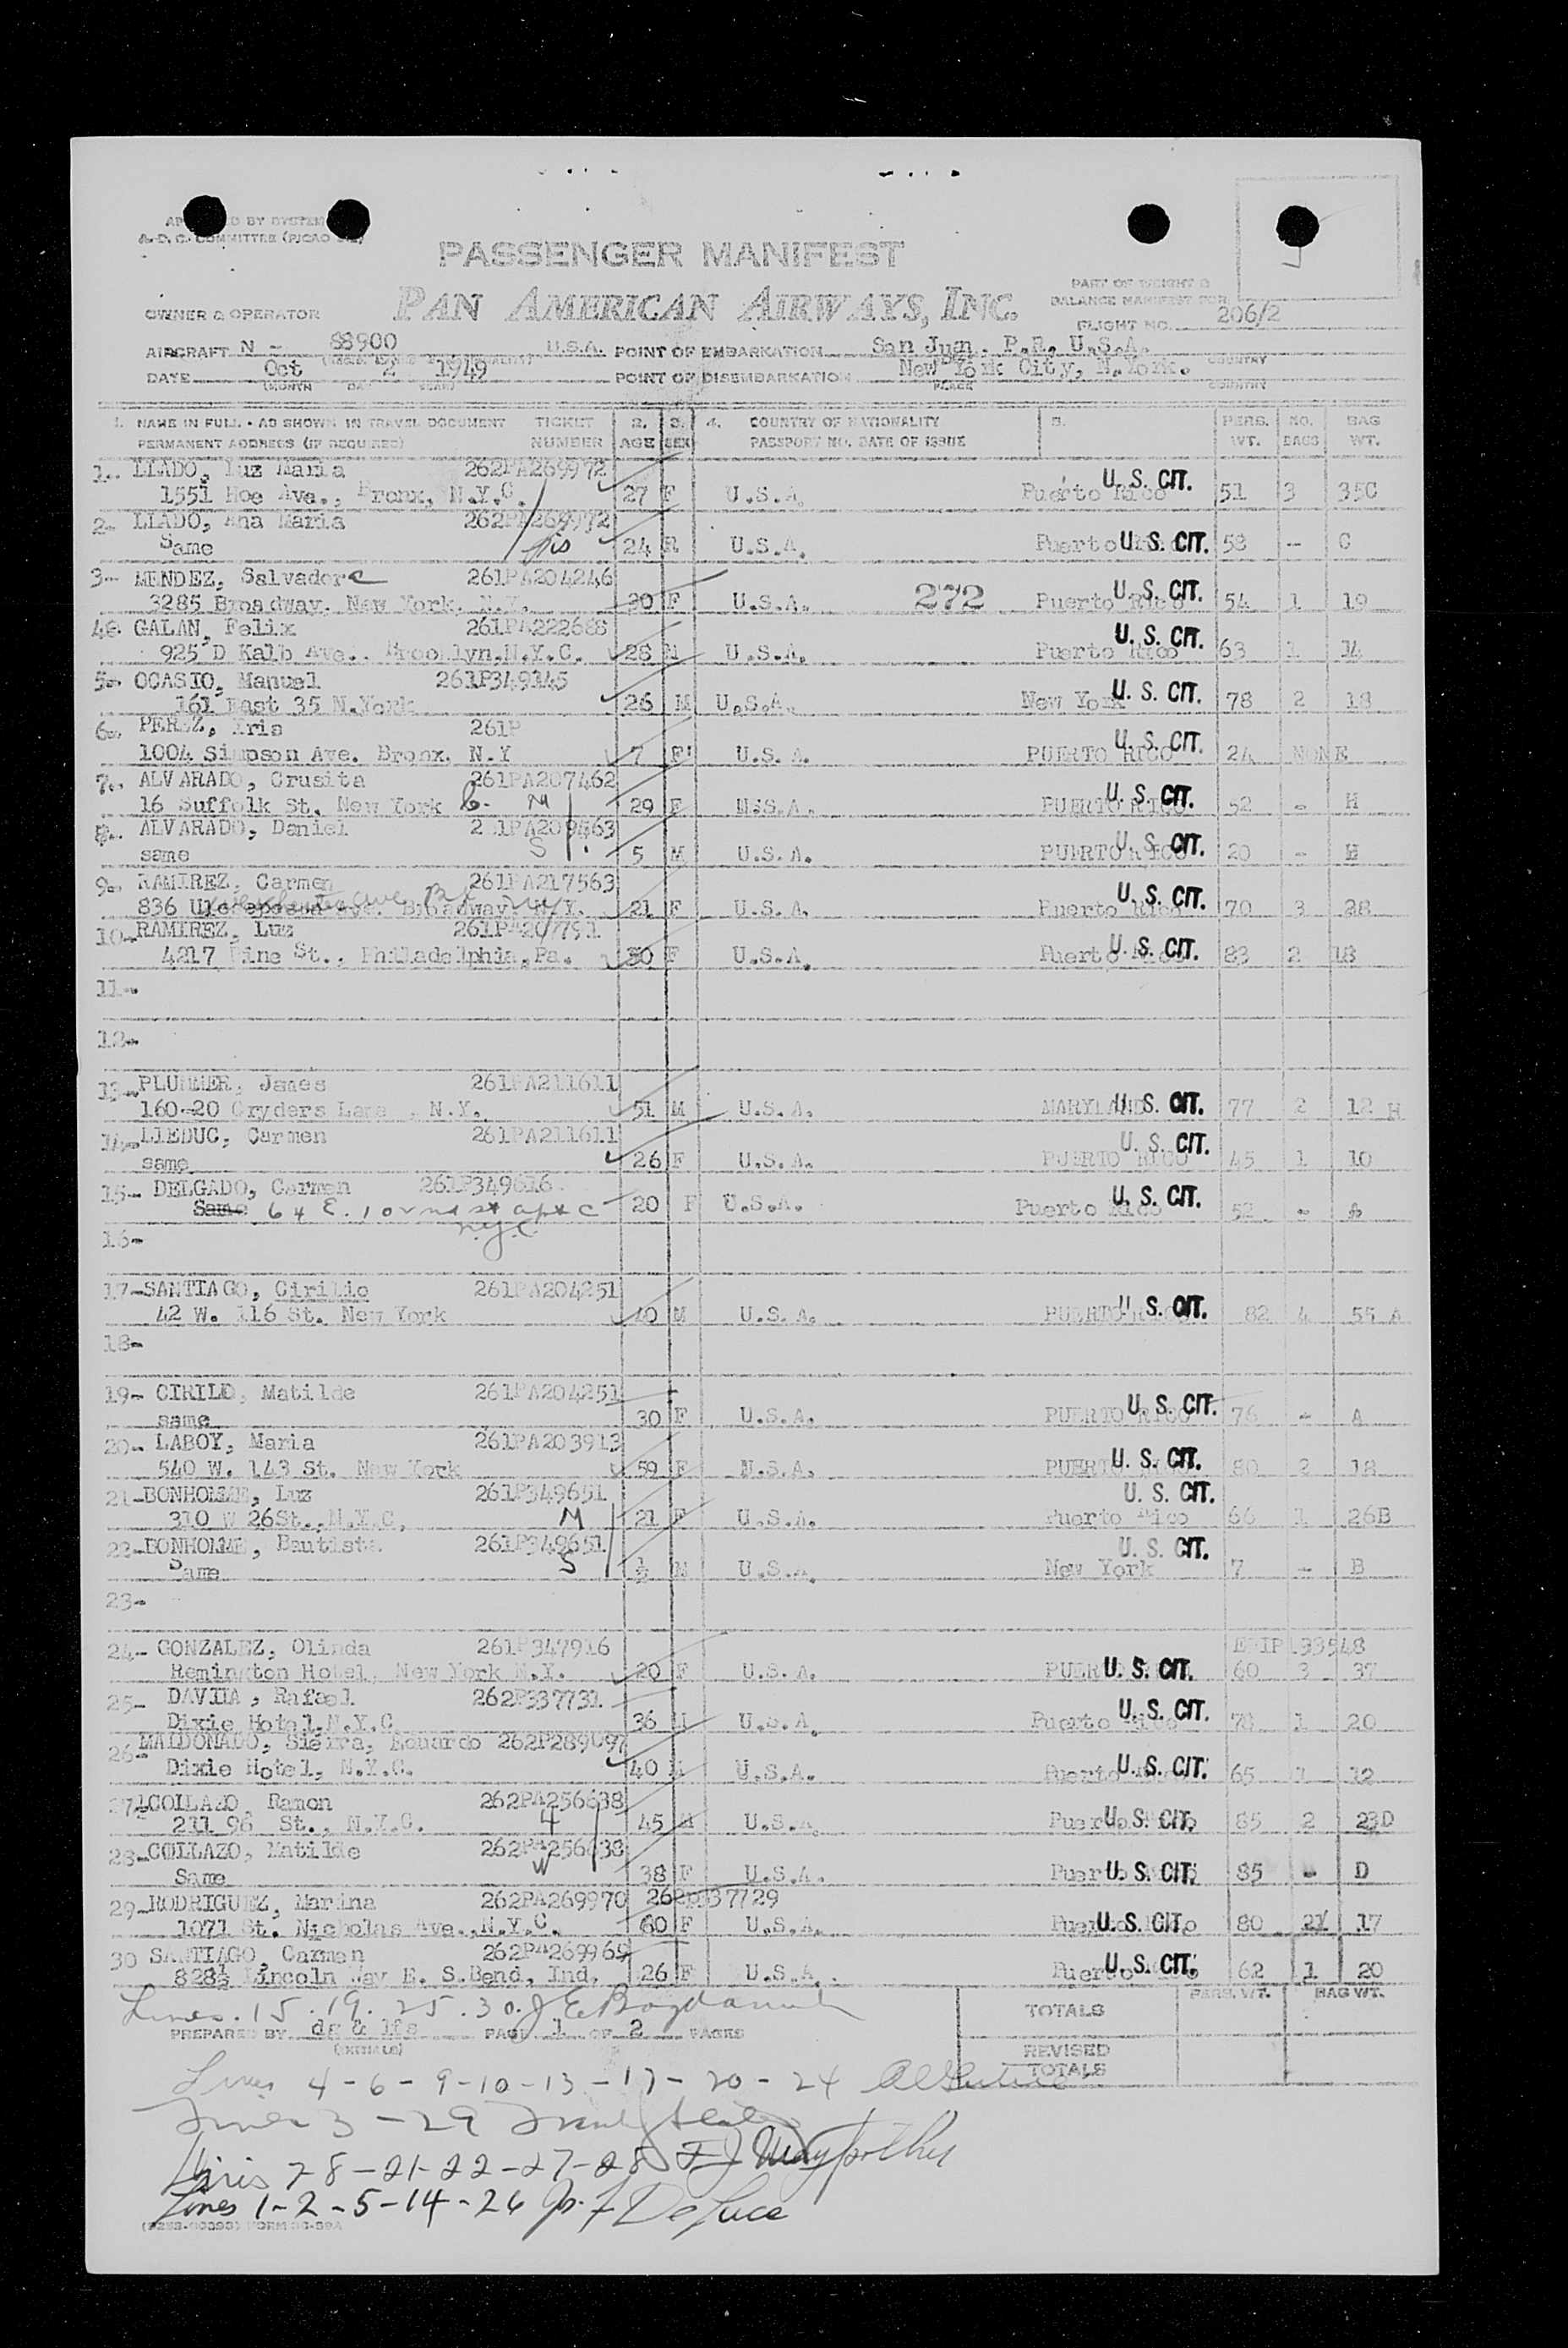 PASSENGER MANIFEST
PAN AMERICAN AIRWAYS, INC.
PART OF WEIGHT &
BALANCE MANIFEST FOR
FLIGHT NO. 206/2
OWNER & OPERATOR
AIRCRAFT N - 88900 U.S.A. POINT OF EMBARKATION San Juan. P.R. U.S.A.
DATE Oct 2 1949 POINT OF DISEMBARKATION New York City, N.York.
(MONTH DAY YEAR) PLACE COUNTRY
1. NAME IN FULL - AS SHOWN IN TRAVEL DOCUMENT TICKET 2. 3. 4. COUNTRY OF NATIONALITY 5. PERS. NO. BAG
PERMANENT ADDRESS (IF REQUIRED) NUMBER AGE SEX PASSPORT NO. DATE OF ISSUE WT. BAGS WT.
1- LLADO, Luz Maria 262PA269972
1551 Hoe Ave., Bronx, N.Y.C. 27 F U.S.A. Puerto Rico U.S. CIT. 51 3 35C
2- LLADO, Ana Maria 262PA269972
Same sis 24 R U.S.A. Puerto U.S. CIT. 58 - C
3- MENDEZ, Salvadore 261PA204246
3285 Broadway, New York, N.Y. 20 F U.S.A. 272 Puerto Rico U.S. CIT. 54 1 19
4- GALAN, Felix 261PA222688
925 D Kalb Ave.. Brooklyn,N.Y.C. 28 M U.S.A. Puerto Rico U.S. CIT. 63 1 14
5- OCASIO, Manuel 261P349145
161 East 35 N.York 26 M U.S.A. New York U.S. CIT. 78 2 18
6- PEREZ, Iris 261P
1004 Simpson Ave. Bronx, N.Y 7 F U.S.A. PUERTO RICO U.S. CIT. 24 NONE
7- ALVARADO, Crusita 261PA207462
16 Suffolk St. New York M 29 F N.S.A. PUERTO RICO U.S. CIT. 52 - H
8- ALVARADO, Daniel 2 1PA209563
same S 5 M U.S.A. PUERTO RICO U.S. CIT. 20 - H
9- RAMIREZ, Carmen 261PA217563
836 Broadway. N.Y. 21 F U.S.A. Puerto Rico U.S. CIT. 70 3 28
10- RAMIREZ, Luz 261PA207791
4217 Pine St., Philadelphia,Pa. 30 F U.S.A. Puerto Rico U.S. CIT. 83 2 18
11-
12-
13- PLUMMER, James 261PA211611
160-20 Cryders Lane , N.Y. 51 M U.S.A. MARYLAND U.S. CIT. 77 2 12 H
14- LLEDUC, Carmen 261PA211611
same 26 F U.S.A. PUERTO RICO U.S. CIT. 45 1 10
15- DELGADO, Carmen 261P349616
Same 64 E. 102nd st apt c 20 F U.S.A. Puerto Rico U.S. CIT. 52 - A
nyc
16-
17- SANTIAGO, Cirilio 261PA204251
42 W. 116 St. New York 40 M U.S.A. PUERTO RICO U.S. CIT. 82 4 55 A
18-
19- CIRILO, Matilde 261PA204251
same 30 F U.S.A. PUERTO RICO U.S. CIT. 76 - A
20- LABOY, Maria 261PA203913
540 W. 143 St. New York 59 F N.S.A. PUERTO U.S. CIT. 80 2 18
21- BONHOMME, Luz 261P349651
310 W 26St.,N.Y.C. M 21 F U.S.A. Puerto Rico U.S. CIT. 66 1 26B
22- BONHOMME, Bautista 261P349651
Same S ½ M U.S.A. New York U.S. CIT. 7 - B
23-
24- GONZALEZ, Olinda 261P347916
Remington Hotel, New York N.Y. 20 F U.S.A. PUER U.S. CIT. 60 3 37
25- DAVILA, Rafael 262P337731
Dixie Hotel.N.Y.C 36 M U.S.A. Puerto Rico U.S. CIT. 78 1 20
26- MALDONADO, Sierra, Eduardo 262P289097
Dixie Hotel, N.Y.C. 40 M U.S.A. Puerto U.S. CIT. 65 1 12
27- COLLAZO, Ramon 262PA256638
211 96 St., N.Y.C. H 45 M U.S.A. Puer U.S. CIT. 85 2 23D
28- COLLAZO, Matilde 262PA256638
Same W 38 F U.S.A. Puer U.S. CIT. 85 - D
29- RODRIGUEZ, Marina 262PA269970 262P337729
1071 St. Nicholas Ave.,N.Y.C. 60 F U.S.A. Puer U.S. CIT. 80 21 17
30 SANTIAGO, Carmen 262PA269969
828½ Lincoln Way E. S.Bend, Ind. 26 F U.S.A. Puer U.S. CIT. 62 1 20
Lines. 15. 19. 25. 30.
PREPARED BY dg & lfs PAGE 1 OF 2 PAGES
(INITIALS)
TOTALS PERS. WT. BAG WT.
REVISED
TOTALS
Lines 4-6-9-10-13-17-20-24
Lines 3-29
Lines 7-8-21-22-27-28
Lines 1-2-5-14-26 De Luca